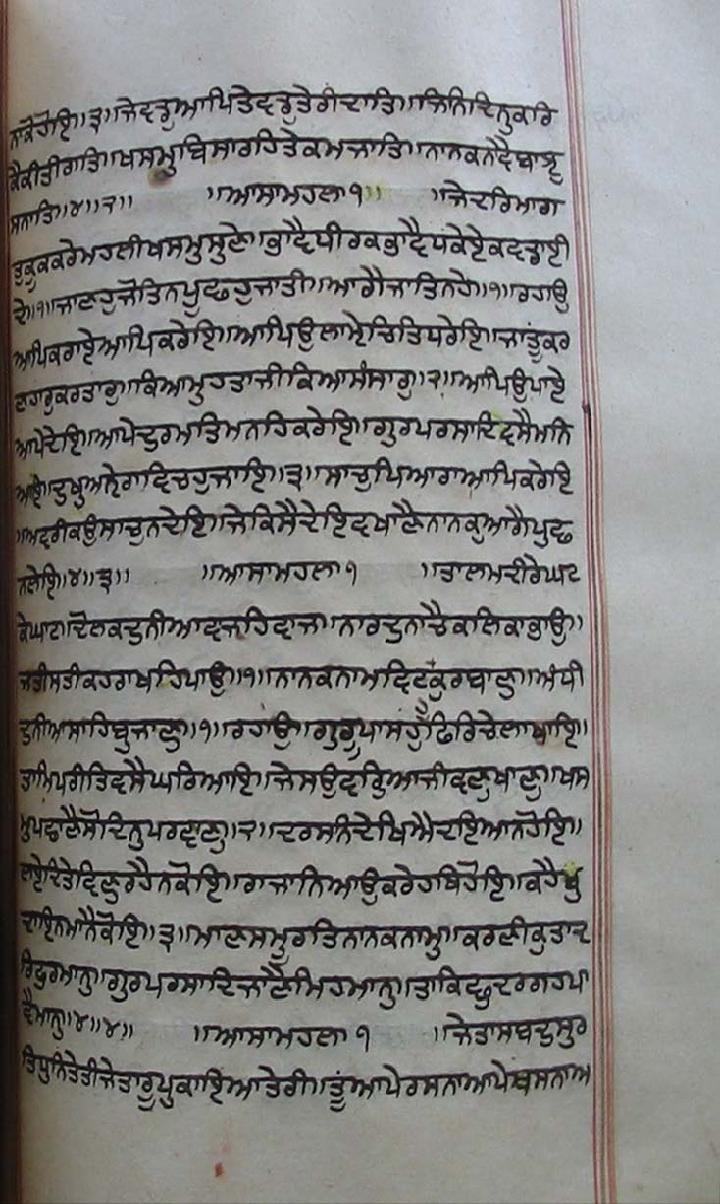 ਨਾਕੋਹੋਇ॥੩॥ਜੇਵਡੁਆਪਿਤੇਵਡੁਤੇਰੀਦਾਤਿ॥ਜਿਨਿਦਿਨੁਕਰਿ
ਕੈਕੀਤੀਰਾਤਿ॥ਖਸਮੁਵਿਸਾਰਹਿਤੇਕਮਜਾਤਿ॥ਨਾਨਕਨਾਵੈਬਾਝੁ
ਸਨਾਤਿ॥੪॥੨॥ ॥ਆਸਾਮਹਲਾ੧॥ ॥ਜੇਦਰਿਮਾਗ
ਤੁਕੂਕਕਰੇਮਹਲੀਖਸਮੁਸੁਣੇ॥ਭਾਵੈਧੀਰਕਭਾਵੈਧਕੇਏਕਵਡਾਈ
ਦੇ॥੧॥ਜਾਣਹੁਜੋਤਿਨਪੂਛਹੁਜਾਤੀ॥ਆਗੈਜਾਤਿਨਹੇ॥੧॥ਰਹਾਉ
ਆਪਿਕਰਾਏਆਪਿਕਰੇਇ॥ਆਪਿਉਲਾਮ੍ਹੇਚਿਤਿਧਰੇਇ॥ਜਾਤੂੰਕਰ
ਣਹਾਰੁਕਰਤਾਰੁ॥ਕਿਆਮੁਹਤਾਜੀਕਿਆਸੰਸਾਰੁ॥੨॥ਆਪਿਉਪਾਏ
ਆਪੇਦੇਇ॥ਆਪੇਦੁਰਮਤਿਮਨਹਿਕਰੇਇ॥ਗੁਰਪਰਸਾਦਿਵਸੈਮਨਿ
ਆਇ॥ਦੁਖੁਅਨ੍ਹੇਰਾਵਿਚਹੁਜਾਇ॥੩॥ਸਾਚੁਪਿਆਰਾਆਪਿਕਰੇਇ
॥ਅਵਰੀਕਉਸਾਚੁਨਦੇਇ॥ਜੇਕਿਸੈਦੇਇਵਖਾਣੈਨਾਨਕੁਆਗੈਪੂਛ
ਨਲੇਇ॥੪॥੩॥ ॥ਆਸਾਮਹਲਾ੧ ॥ਤਾਲਮਦੀਰੇਘਟ
ਕੇਘਾਟ॥ਦੋਲਕਦੁਨੀਆਵਾਜਹਿਵਾਜ॥ਨਾਰਦੁਨਾਚੈਕਲਿਕਾਭਾਉ॥
ਜਤੀਸਤੀਕਹਰਾਖਹਿਪਾਉ॥੧॥ਨਾਨਕਨਾਮਵਿਟਹੁਕੁਰਬਾਣੁ॥ਅੰਧੀ
ਦੁਨੀਆਸਾਹਿਬੁਜਾਣੁ॥੧॥ਰਹਾਉ॥ਗੁਰੂਪਾਸਹੁਫਿਰਿਚੇਲਾਖਾਇ॥
ਤਾਮਿਪਰੀਤਿਵਸੈਘਰਿਆਇ॥ਜੇਸਉਵਰ੍ਹਿਆਜੀਵਣੁਖਾਣੁ॥ਖਸ
ਮੁਪਛਾਣੈਸੋਦਿਨੁਪਰਵਾਣੁ॥੨॥ਦਰਸਨਿਦੇਖਿਐਦਇਆਨਹੋਇ॥
ਲਏਦਿਤੇਵਿਣੁਰਹੈਨਕੋਇ॥ਰਾਜਾਨਿਆਉਕਰੇਹਥਿਹੋਇ॥ਕਹੈਖੁ
ਦਾਇਨਮਾਨੈਕੋਇ॥੩॥ਮਾਣਸਮੂਰਤਿਨਾਨਕਨਾਮੁ॥ਕਰਣੀਕੁਤਾਦ
ਰਿਫੁਰਮਾਨੁ॥ਗੁਰਪਰਸਾਦਿਜਾਣੈਮਿਹਮਾਨੁ॥ਤਾਕਿਛੁਦਰਗਹਪਾ
ਵੈਮਾਨੁ॥੪॥੪॥ ॥ਆਸਾਮਹਲਾ੧ ॥ਜੇਤਾਸਬਦੁਸੁਰ
ਤਿਧੁਨਿਤੇਤੀਜੇਤਾਰੂਪੁਕਾਇਆਤੇਰੀ॥ਤੂੰਆਪੇਰਸਨਾਆਪੇਬਸਨਾਅ